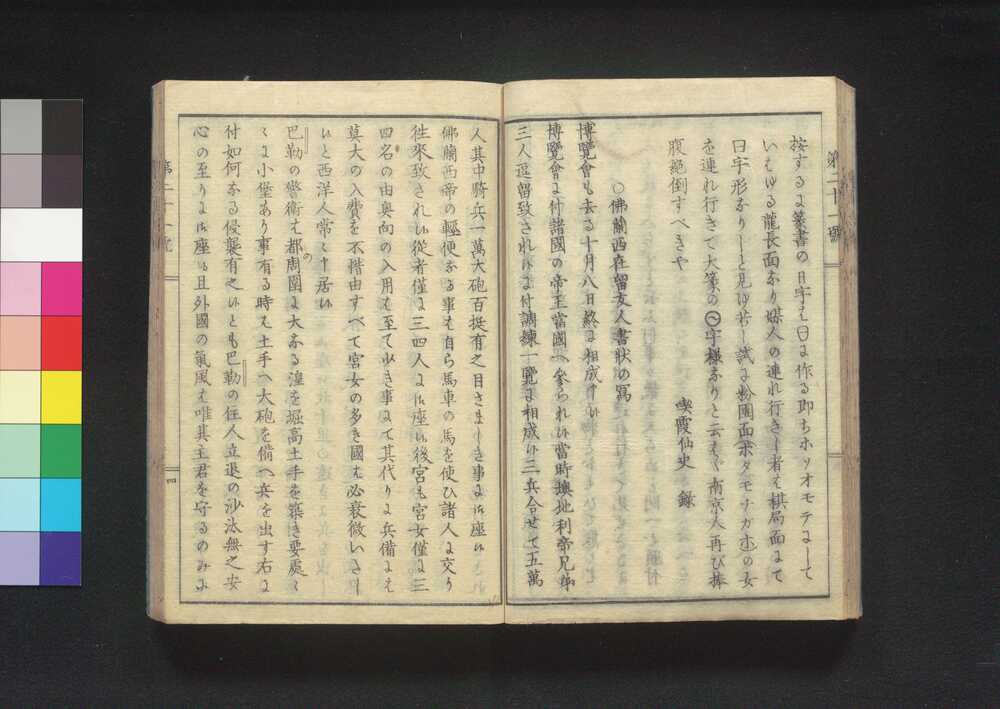 第二十一號
按するに篆書の日字は日に作る即ちホソオモテにして
いはゆる龍長面なり媒人の連れ行きし者は棋局面にて
日字形なりしと見ゆ若し試に粉團面ボタモチガホの女
を連れ行きて大篆の字様なりと云はゞ南京人再び捧
腹絶倒すべきや
喫霞仙史 錄
○佛蘭西在留友人書狀の寫
博覽會も去る十月八日終に相成申い
博覽會に付諸國の帝王當國へ參られい當時墺地利帝兄弟
三人逗留致されいに付調練一覽に相成い三兵合せて五萬
人其中騎兵一萬大砲百挺有之目さましき事に御座い
佛蘭西帝の輕便なる事は自ら馬車の馬を使ひ諸人に交り
徃來致されい從者僅に三四人に御座い後宮も宮女僅に三
四名の由奥向の入用は至て少き事にて其代りに兵備には
莫大の入費を不惜由すべて宮女の多き國は必衰微いたし
いと西洋人常々申居い
巴勒の警衛は都の周圍に大なる湟を堀高土手を築き要處々
々に小堡あり事有る時は土手へ大砲を備へ兵を出す右に
付如何なる侵襲有之いとも巴勒の住人立退の沙汰無之安
心の至りに御座い且外國の氣風は唯其主君を守るのみに
第二十一號
四